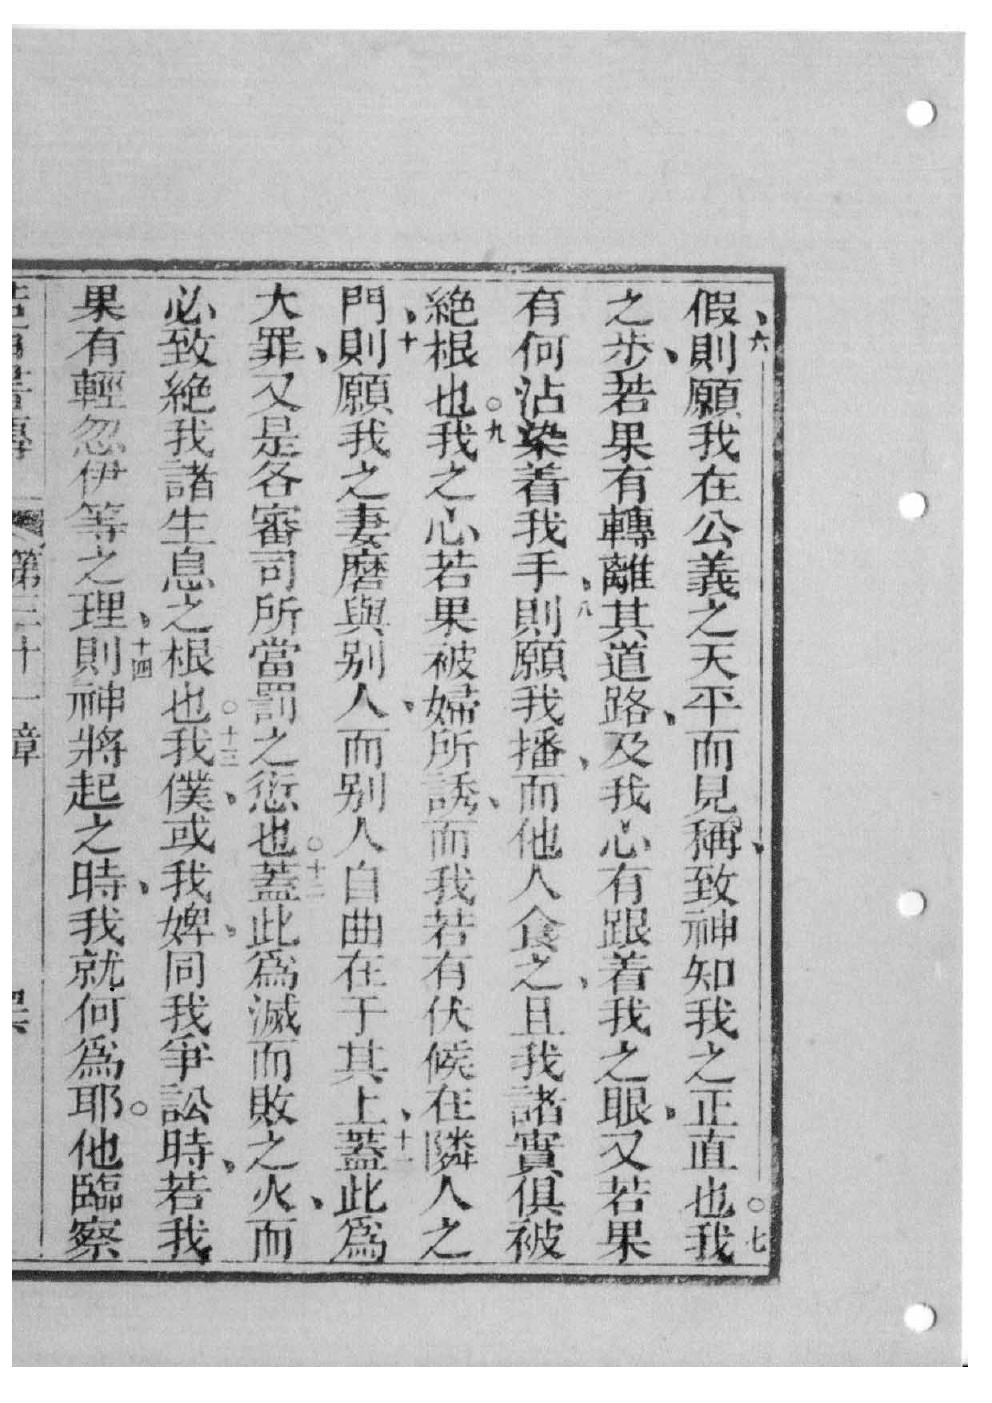 假、六則願我在公義之天平而見稱、致神知我之正直也。七我
之步、若果有轉離其道路、及我心有跟着我之眼、又若果
有何沾染着我手、八則願我播、而他人食之、且我諸實俱被
絶根也。九我之心若果被婦所誘、而我若有伏候在隣人之
門、十則願我之妻磨與別人、而別人自曲在于其上、十一蓋此爲
大罪、又是各審司所當罰之愆也。十二蓋此爲滅而敗之火、而
必致絶我諸生息之根也。十三我僕、或我婢、同我爭訟時、若我
果有輕忽伊等之理、十四則神將起之時、我就何爲耶。他臨察
第三十一章